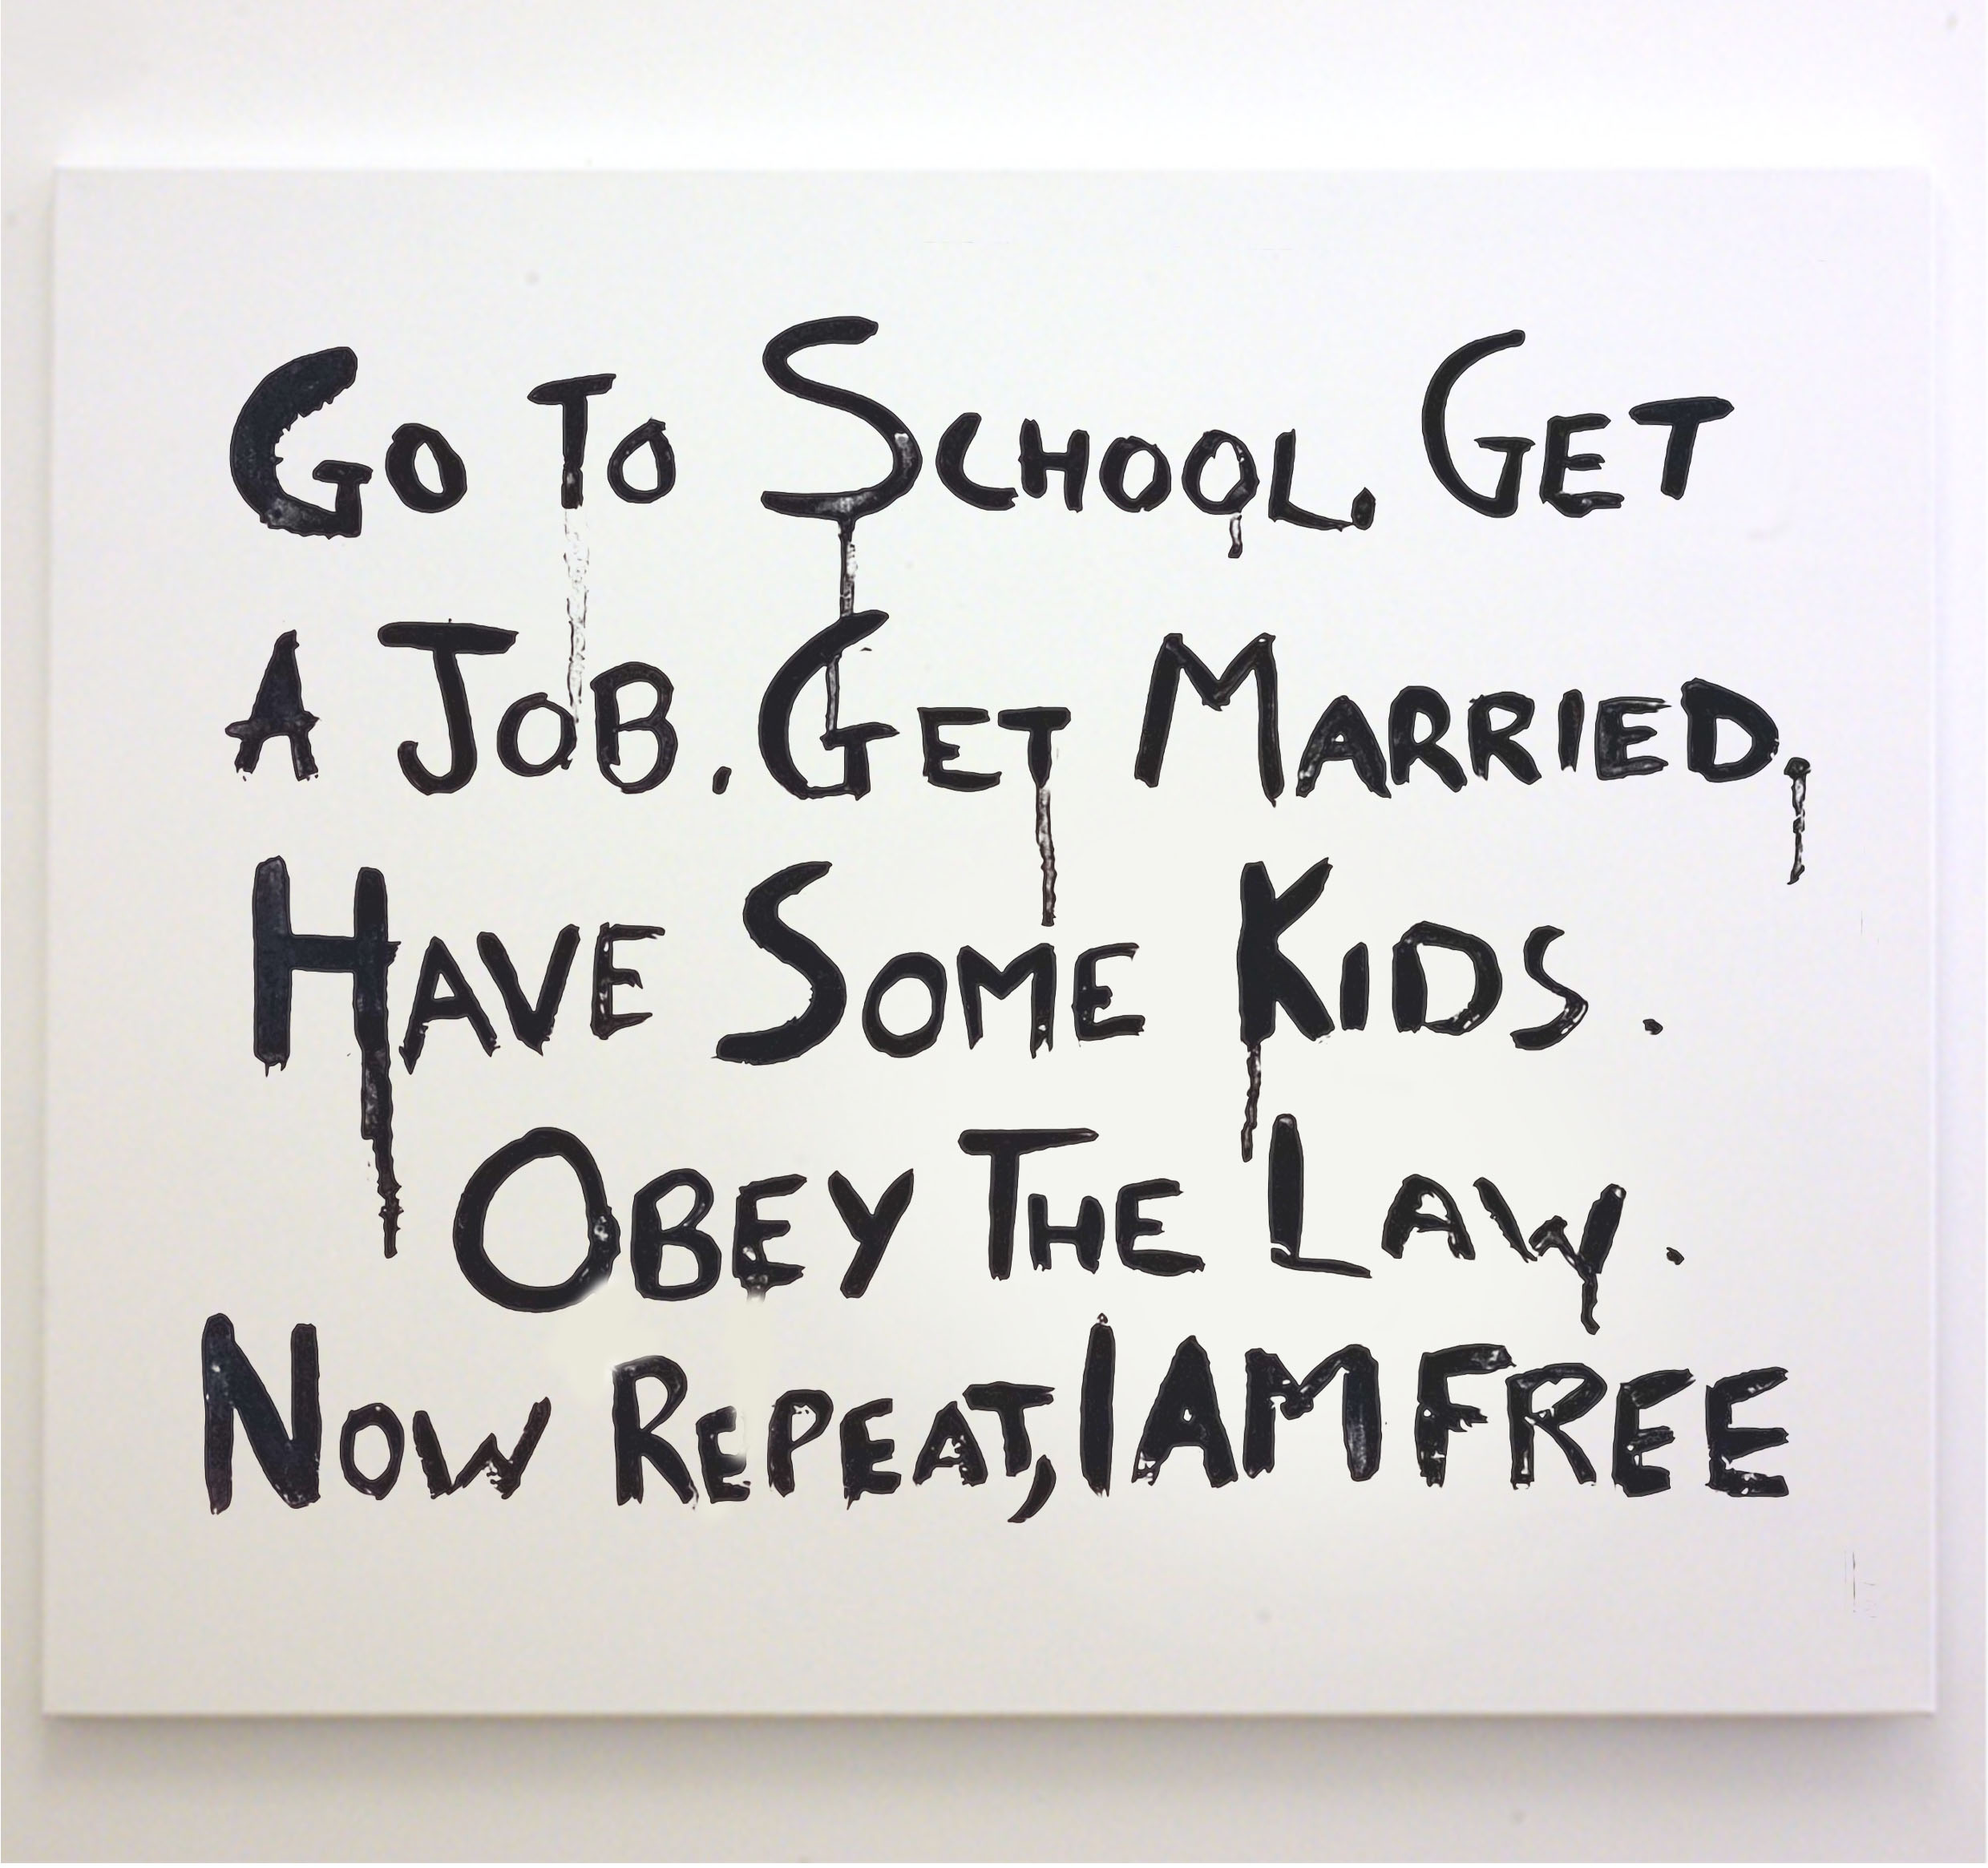 Go To School. Get
A Job. Get Married,
Have Some Kids.
Obey The Law.
Now Repeat, I AM FREE